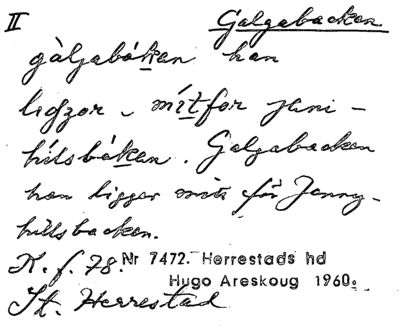 II Galgabacken
gàljabákan han
ligzor . mítfor jæni-
hílsbákan. Galgabacken
han ligger mitt för Jenny-
hillsbacken.
K. f. 78. Nr 7472. Herrestads hd
Hugo Areskoug 1960.
St. Herrestad